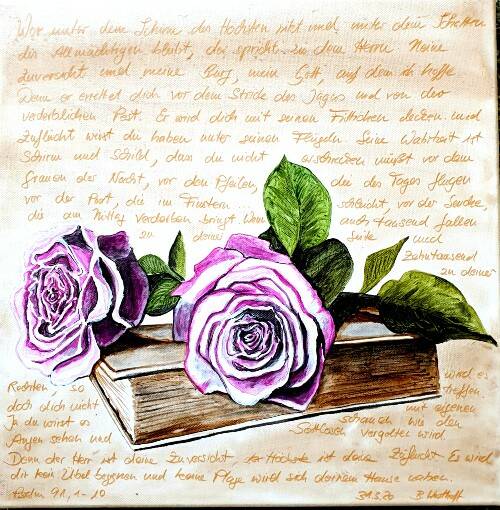 Wer unter dem Schirm des Höchsten sitzt und unter dem Schatten
des Allmächtigen bleibt, der spricht zu dem Herrn Meine
Zuversicht und meine Burg, mein Gott, auf dem ich hoffe
Denn er errettet dich vor dem Stricke des Jägers und von der
verderblichen Pest. Er wird dich mit seinen Fittichen decken und
Zuflucht wirst du haben unter seinen Flügeln Seine Wahrheit ist
Schirm und Schild, dass du nicht erschrecken musst vor dem
Grauen der Nacht, vor den Pfeilen, die des Tages fliegen
vor der Pest, die im Finstern... schleicht, vor der Seuche,
die am Mittag Verderben bringt Wenn auch tausend fallen
zu deiner Seite und
Zehntausend
zu deiner
Rechten, so wird es
doch dich nicht treffen
Ja du wirst es mit eigenen
Augen sehen und schauen wie den
Gottlosen vergolten wird.
Denn der Herr ist deine Zuversicht der Höchste ist deine Zuflucht Es wird
dir kein Übel begegnen und keine Plage wird sich deinem Hause nahen.
Psalm 91, 1-10 31.3.20